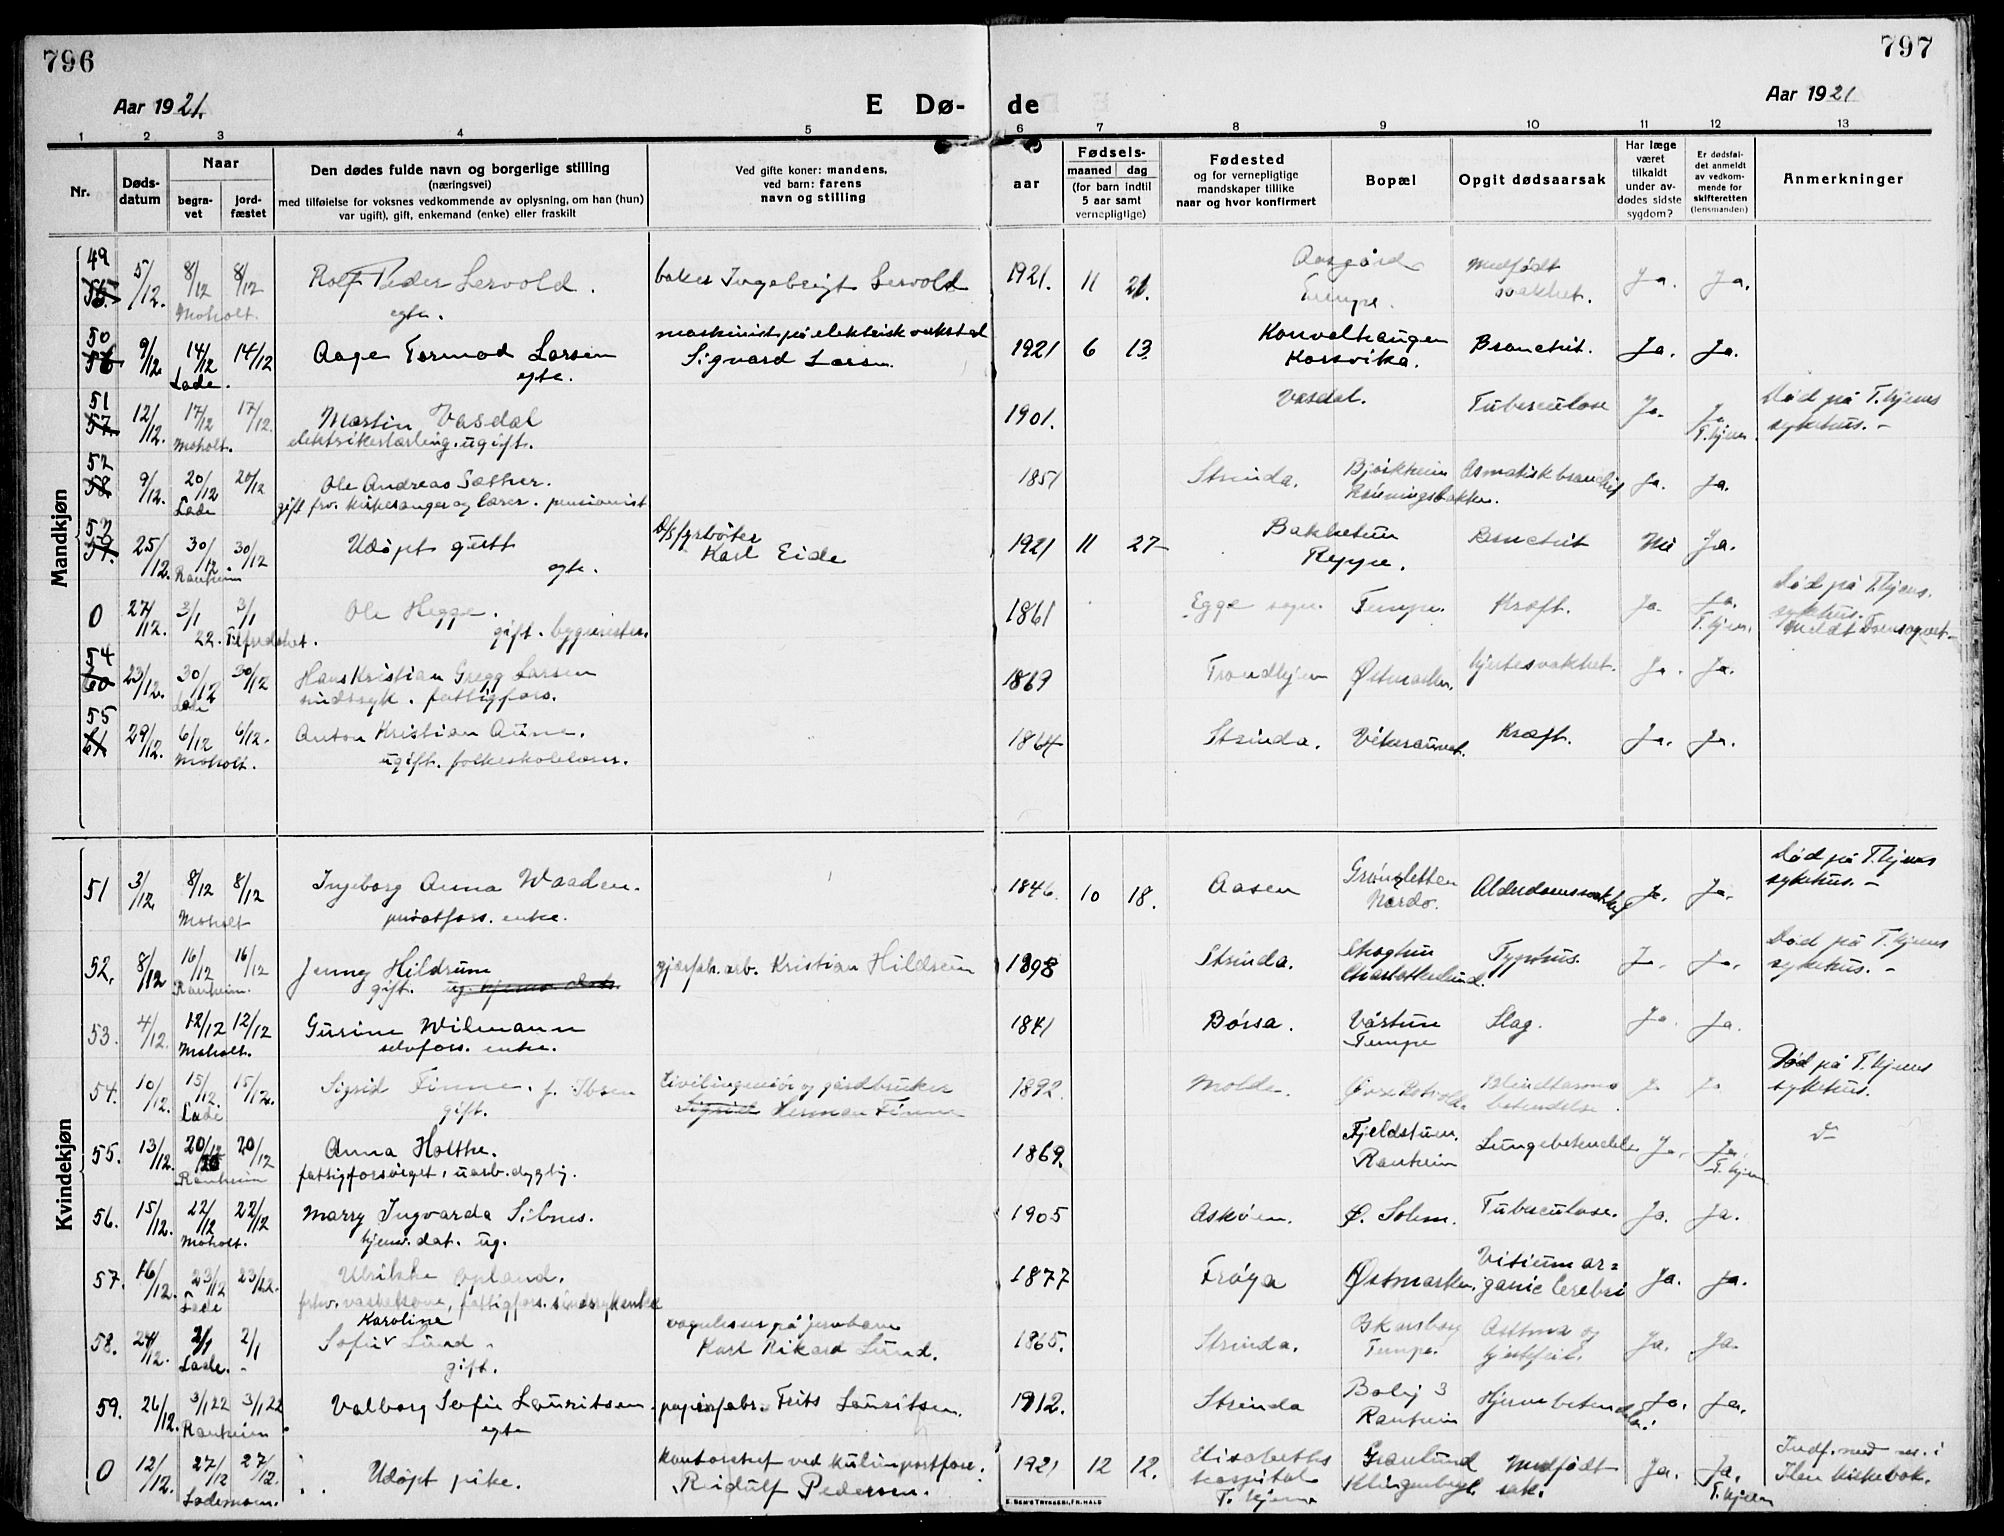 796
797
Aar 1921.
E Dø-
de
Aar 1921
1 2 3 4 5 6 7 8 9 10 11 12 13
Nr.
Døds-
datum
Naar
begra-
vet
jord-
fæstet
Den dødes fulde navn og borgerlige stilling
(næringsvei)
med tilføielse for voksnes vedkommende av oplysning, om han (hun)
var ugift), gift, enkemand (enke) eller fraskilt
Ved gifte koner: mandens,
ved barn: farens
navn og stilling
aar
Fødsels-
maaned dag
(for barn indtil
5 aar samt
vernepligtige)
Fødested
og for vernepligtige
mandskaper tillike
naar og hvor konfirmert
Bopæl
Opgit dødsaarsak
Har læge
været
tilkaldt
under av-
dødes sidste
sygdom?
Er dødsfal-
det anmeldt
av vedkom-
mende for
skifteretten
(lensmanden)
Anmerkninger
Mandkjøn
49 5/12. 8/12 8/12 Rolf Peder Lervold. baker Ingebrigt Lervold 1921. 11 21. Aasgård Medfødt Ja. Ja.
Moholt. egte. Tempe. svakhet.
50 9/12. 14/12 14/12 Aage Tormod Larsen maskinist på elektrisk verksted 1921 6 13. Bronchit. Ja. Ja.
Lade. egte. Sigvard Larsen. Korsvika.
51 12/12. 17/12 17/12. Martin Vasdal 1901. Vasdal. Tuberculose Ja. Ja. Død på T.hjems
Moholt. elektrikerlærling. ugift. T.hjem. sykehus. -
52 9/12. 20/12 20/12 Ole Andreas Sæther. 1851 Strinda. Bjørkheim Asmatisk bronchit Ja. Ja.
Lade gift frv. kirkesanger og lærer. pensionist Rønningsbakken.
53 25/12. 30/12 30/12 Udøpt gutt D/S fyrbøter 1921 11 27 Bakketun Bronchit Nei Ja.
Ranheim egte. Karl Eide Reppe.
0 27/12. 3/1 3/1 Ole Hegge. 1861 Egge sogn. Tempe. Kræft. Ja. Ja. Død på T.hjems.
22. gift. bygmester. T.hjem. sykehus.
54 23/12. 30/12 30/12 Hans Kristian Gregg Larsen 1869 Trondhjem Østmarken. hjertesvakhet. Ja. Ja.
Lade sindssyk. fattigfors.
55 29/12. 6/12 6/12. Anton Kristian Aune. 1864 Strinda. Kræft. Ja. Ja.
Moholt. ugift. folkeskolelærer.
Kvindekjøn
51 3/12. 8/12 8/12 Ingeborg Anna Waaden. 1846. 10 18. Aasen Grønsletten Alderdomssvakhet Ja. Ja. Død på T.hjems
Moholt privatfors. enke. Nardo. sykehus. -
52. 8/12 16/12 16/12 Jenny Hildrum Kristian Hildrum 1898 Strinda. Skoghus Typhus. Ja. Ja. Død på T.hjems
Ranheim. gift. Charlottenlund. sykehus. -
53. 4/12. 12/12 12/12 Gurine Wilmann 1841 Børsa. Vårtun Slag. Ja. Ja.
Moholt. selvfors. enke. Tempe
54. 10/12. 15/12 15/12. Sigrid Finne. f. Ibsen Civilingeniør og gårdbruker 1892. Molde. Blindtarms Ja Ja Død på T.hjems
Lade gift. Sigrid Herman Finne betendelse. sykehus.
55. 13/12. 20/12 20/12 Anna Holthe. 1869. Fjeldstuen. Lungebetendelse Ja. Ja.
Ranheim fattigforsørget, uarb.dygtig. Ranheim T.hjem
56. 15/12. 22/12 22/12 Marry Ingvarda Silnes. 1905 Askøen. Ø. Solem. Tuberculose. Ja. Ja.
Moholt. hjemv. dat. ug.
57. 16/12. 23/12 23/12. Ulrikke Opland. 1877 Frøya Østmarken. Vitium or-
Lade frhv. vaskekone, fattigfors. sindssyk enke ganic Cerebri Ja. Ja.
58. 24/12. 2/1 2/1 Karoline
Sofie Lund. vognløser på jernbane 1865. Strinda. Skarsborg Asthma og Ja. Ja.
Lade. - gift. Karl Rikard Lund. Tempe. hjertefeil.
59. 26/12. 3/1 22 3/1 22 Valborg Sofie Lauritsen. Frits Lauritsen. 1912. Strinda Bolig 3 Hjernebetendelse. Ja. Ja.
Ranheim. egte Ranheim
0 12/12. 27/12 27/12. Udøpt pike. 1921 12 12. Elisabeths Granlund Medfødt Ja. Ja. Indf. med nr. i
Lademoen. Ridulf Pedersen. hospital Klingenberg. svak. T.hjem Ilen kirkebok.
T. hjem
E. SEM'S TRYKKERI, FR.HALD